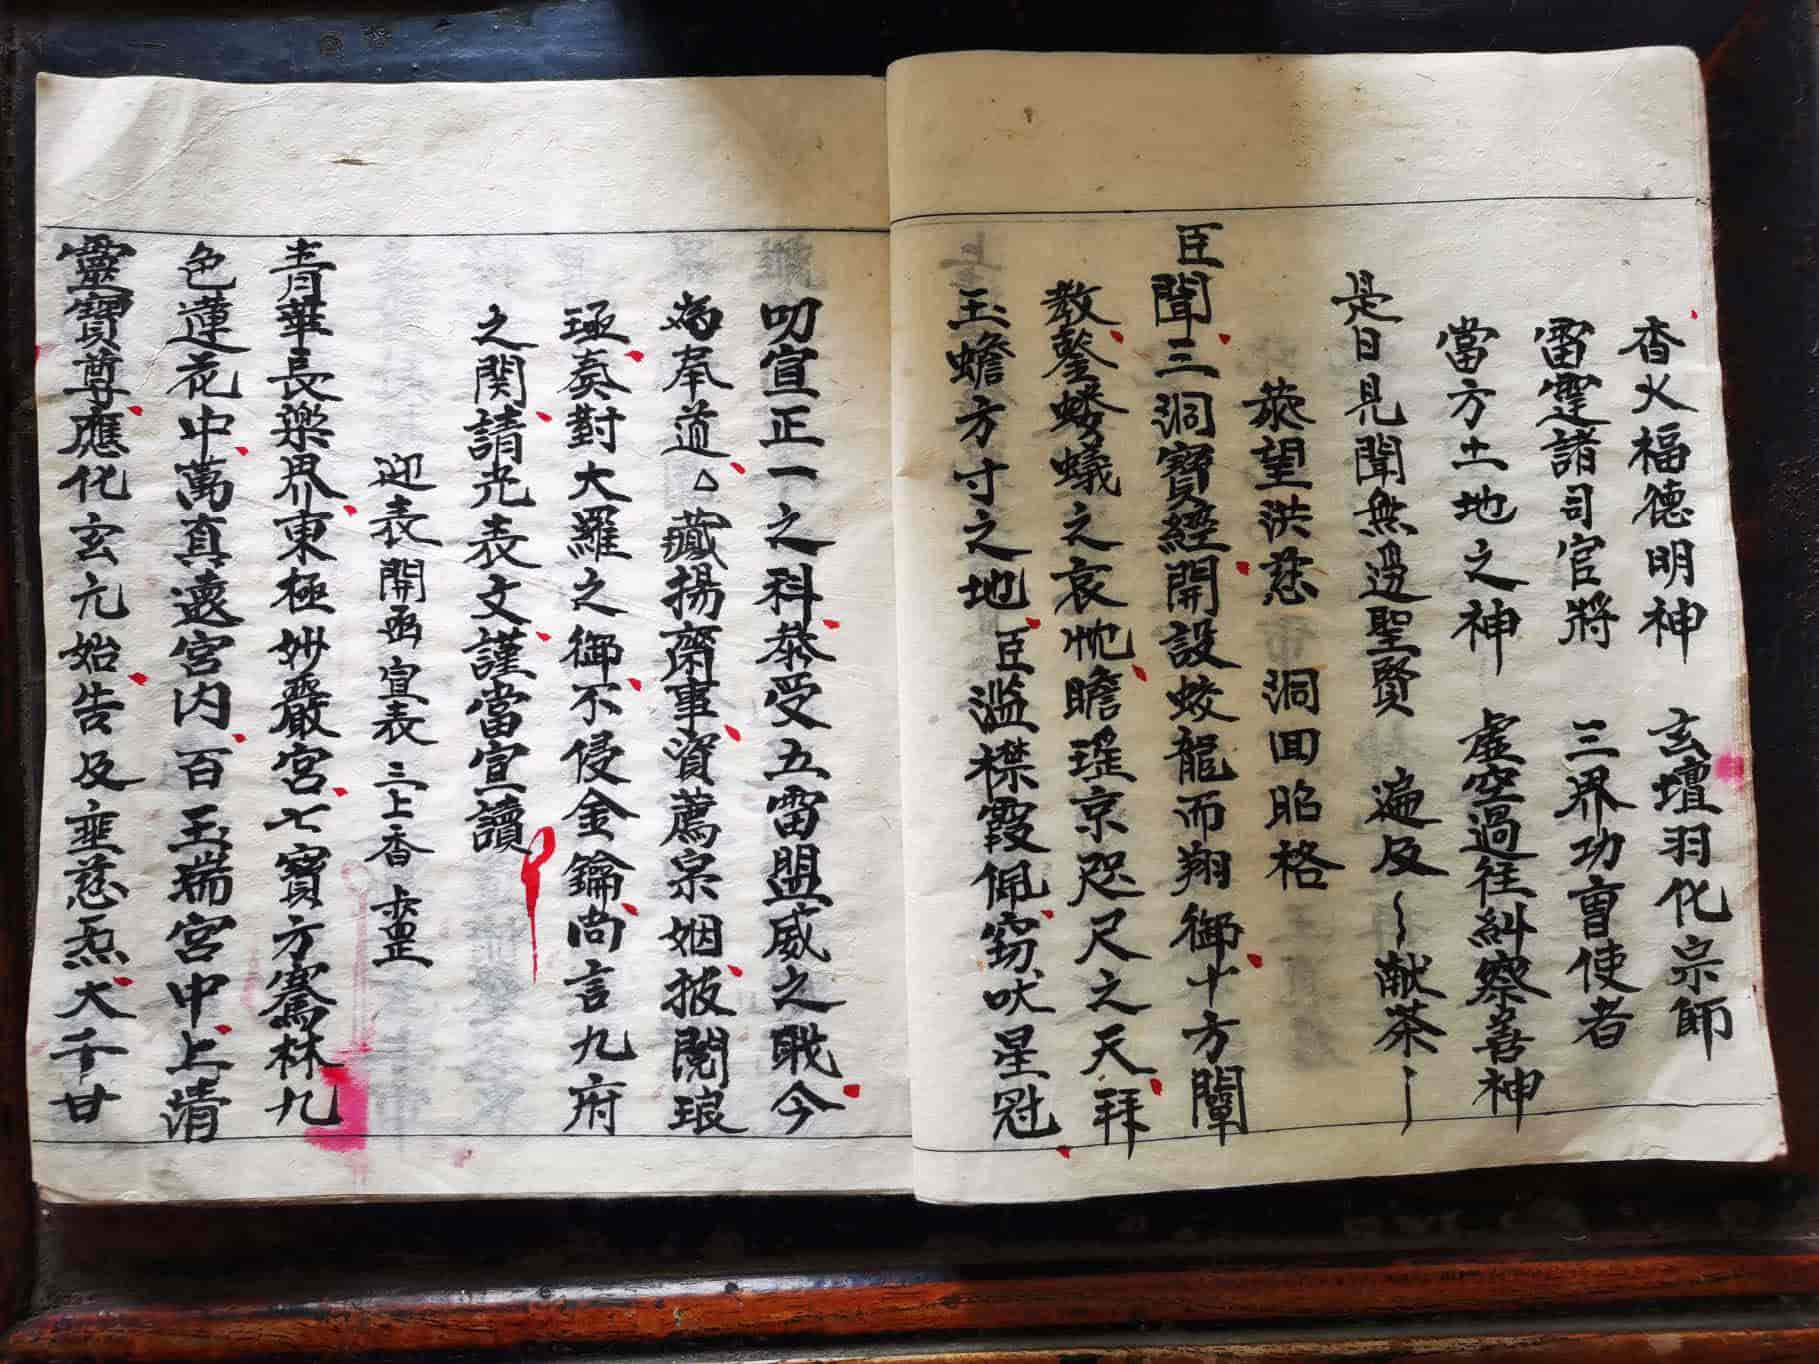 香火福德明神 玄壇羽化宗師
雷霆諸司官將 三界功曹使者
當方土地之神 虛空過往糾察善神
是日見聞無邊聖賢 遍及〜〜献茶〜
恭望洪慈 洞回昭格
臣聞三洞寶經開設蛟龍而翔御十方闡
教鑿螻蟻之哀忱瞻瑤京咫尺之天拜
玉蟾方寸之地臣滥襟霞佩窃吠星冠
叨宣正一之科恭受五雷盟威之戰今
為奉道△藏揚齋事資薦宗姻披閱琅
琢奏對大羅之御不侵金鑰尚言九府
之関請光表文謹當宣讀
迎表 開函 宣表 三上香
青華長樂界東極妙嚴宮七寶方騫林九
色蓮花中萬真遶宮內百玉瑞宮中上清
靈寶尊應化玄元始告及垂慈炁大千甘